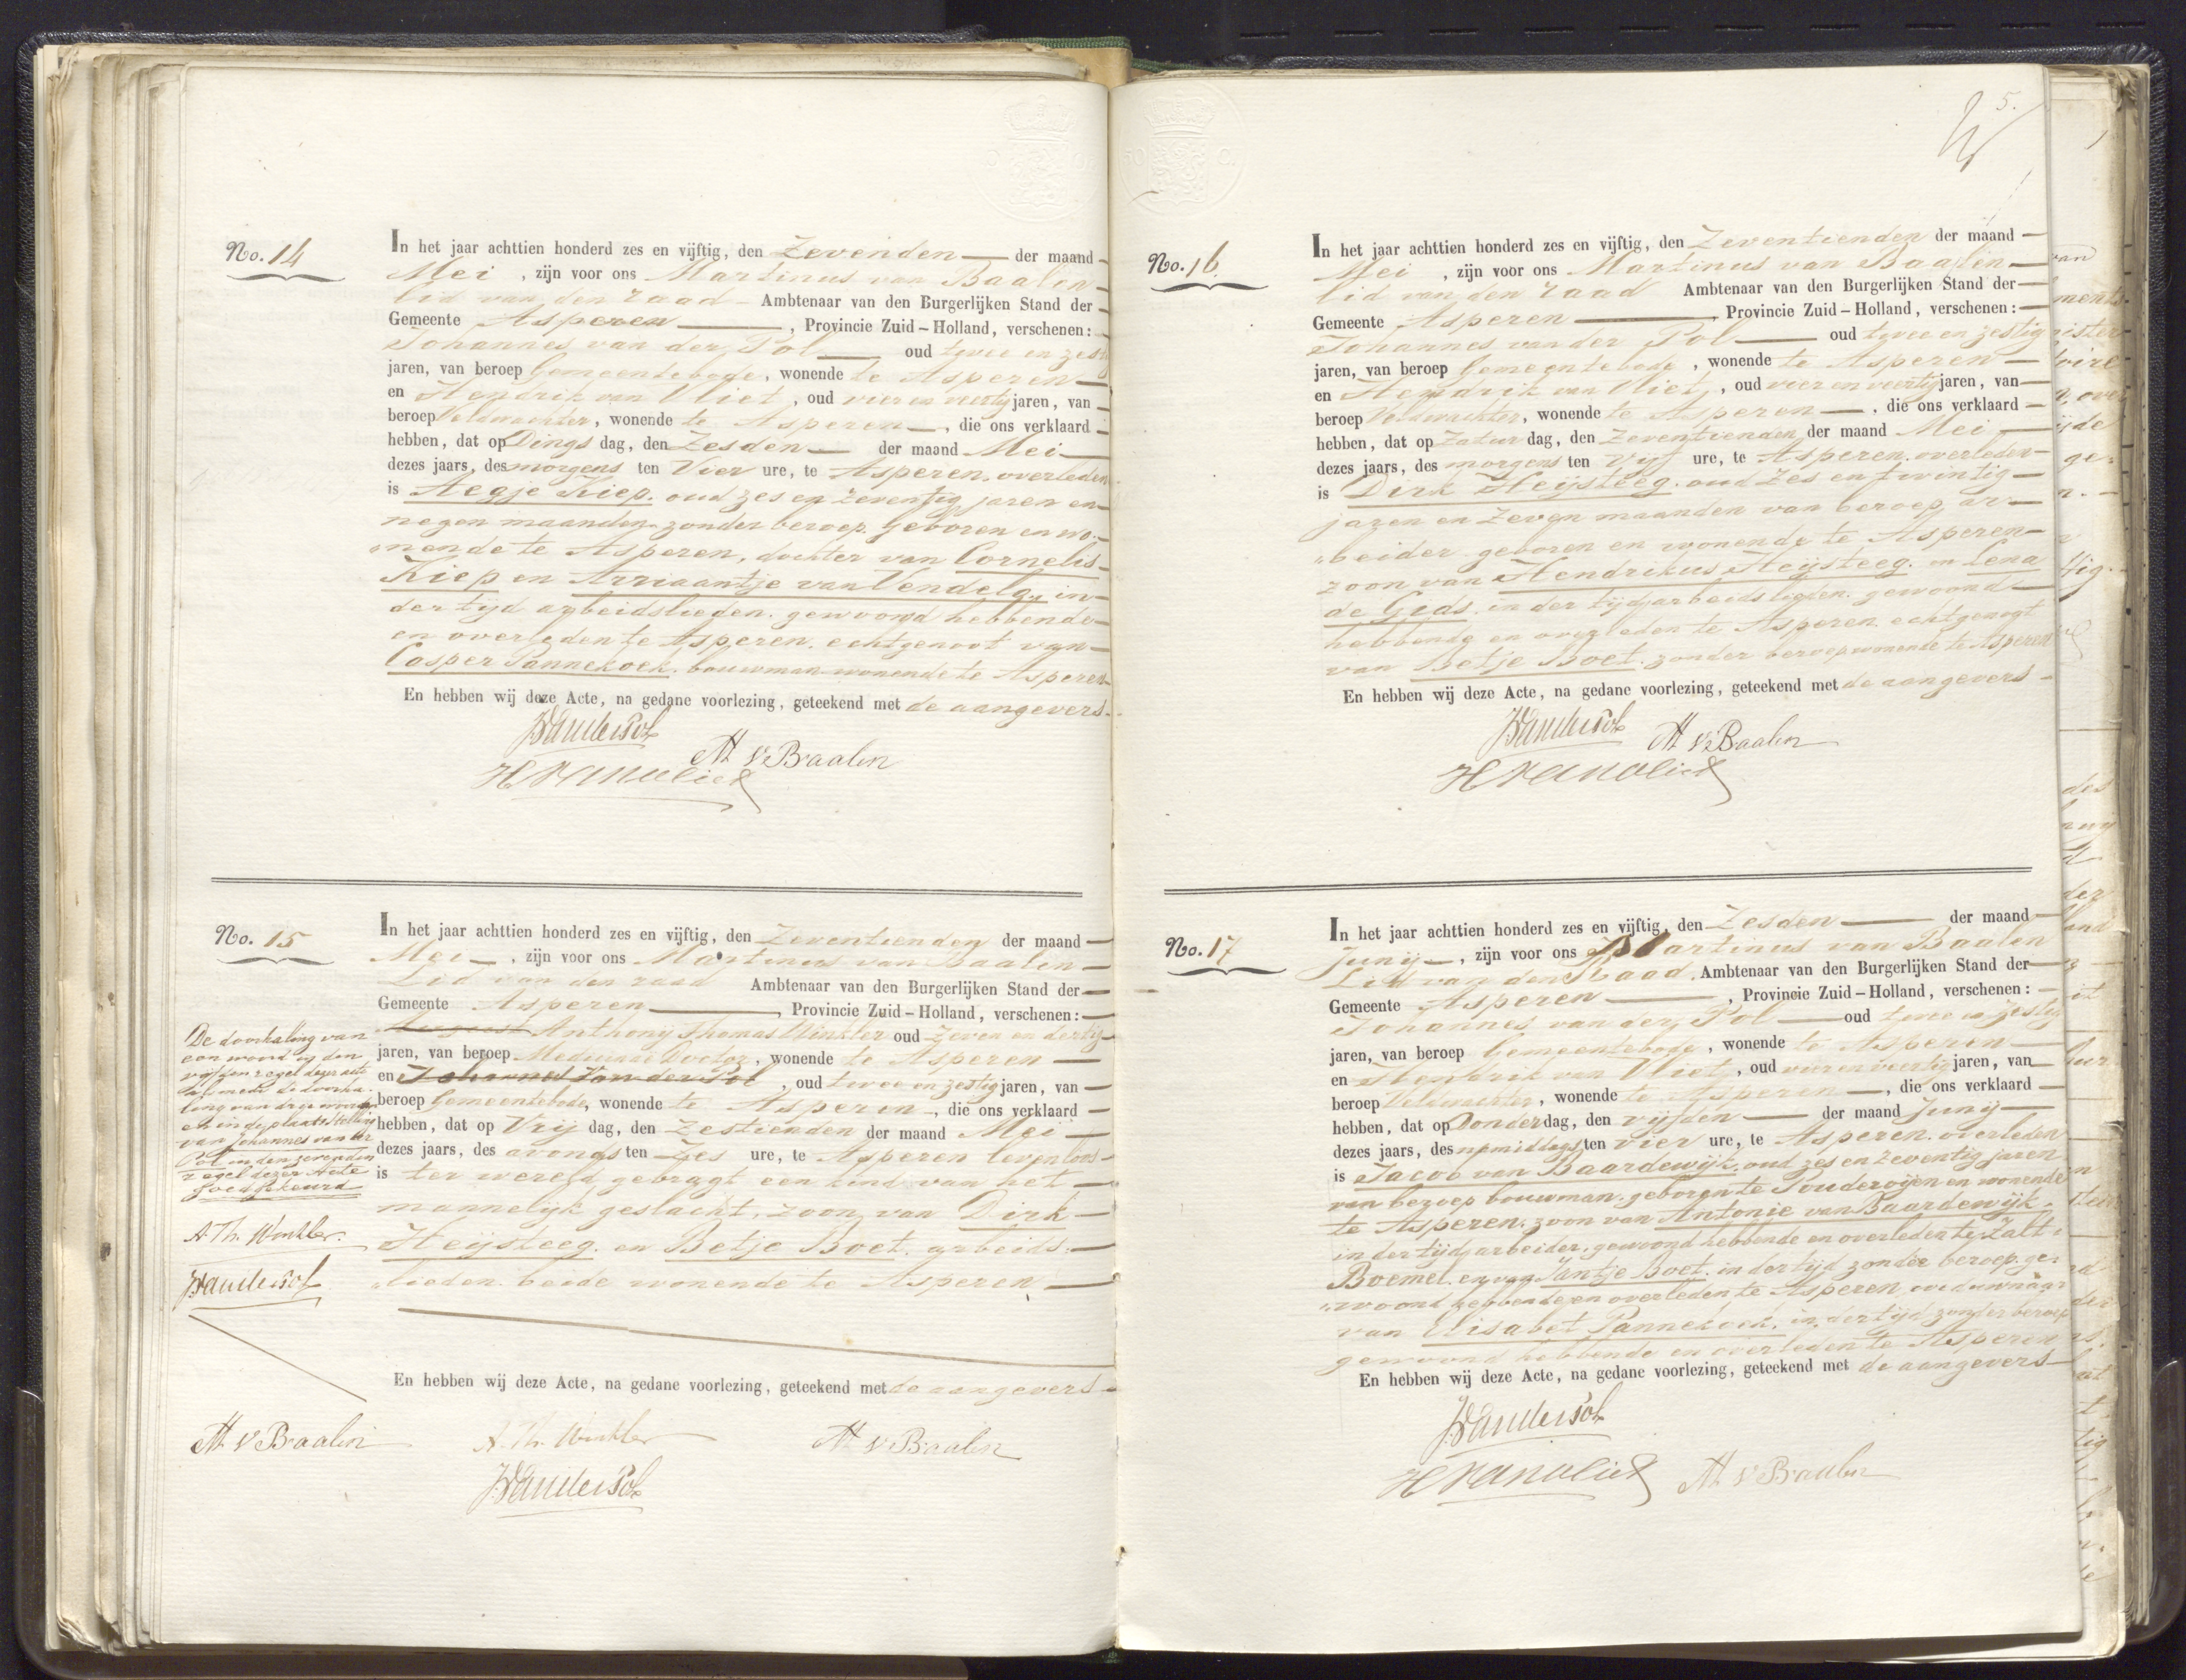 No. 14
In het jaar achttien honderd zes en vijftig, den Zevenden der maand
Mei, zijn voor ons Martinus van Baalen
lid van den raad Ambtenaar van den Burgerlijken Stand der
Gemeente Asperen, Provincie Zuid-Holland, verschenen:
Johannes van der Pol oud twee en zestig
jaren, van beroep Gemeentebode, wonende te Asperen
en Hendrik van Vliet, oud vier en veertig jaren, van
beroep Veldwachter, wonende te Asperen, die ons verklaard
hebben, dat op Dings dag, den Zesden der maand Mei
dezes jaars, des morgens ten Vier ure, te Asperen, overleden
is Aegje Kiep, oud zes en zeventig jaren en
negen maanden zonder beroep, geboren en wo-
nende te Asperen, dochter van Cornelis
Kiep en Arriaantje van Vendelg, in
der tijd arbeidslieden, gewoond hebbende
en overleden te Asperen, echtgenoot van
Casper Pannekoek, bouwman wonende te Asperen
En hebben wij deze Acte, na gedane voorlezing, geteekend met de aangevers
JVanderPol
M v Baalen
H van vliet
No. 15
In het jaar achttien honderd zes en vijftig, den Zeventienden der maand
Mei, zijn voor ons Martinus van Baalen
Lid van den raad Ambtenaar van den Burgerlijken Stand der
Gemeente Asperen, Provincie Zuid-Holland, verschenen:
Anthony Thomas Winkler oud Zeven en dertig
jaren, van beroep Medicinae Doctor, wonende te Asperen
en Johannes Van der Pol, oud twee en zestig jaren, van
beroep Gemeentebode, wonende te Asperen, die ons verklaard
hebben, dat op Vrij dag, den Zestienden der maand Mei
dezes jaars, des avonds ten Zes ure, te Asperen levenloos
is ter wereld gebragt een kind van het
mannelijk geslacht, zoon van Dirk
Heijsteeg en Betje Boet, arbeids-
lieden beide wonende te Asperen
De doorhaling van
een woord in den
vijfden regel dezer acte
alsmede de doorha-
ling van drie woorden
en in de plaatsstelling
van Johannes van der
Pol in den zevenden
regel dezer Acte
Goedgekeurd
A. Th. Winkler.
JVanderPol
M v Baalen
En hebben wij deze Acte, na gedane voorlezing, geteekend met de aangevers
A. Th. Winkler
M v Baalen
JVanderPol
5.
No. 16
In het jaar achttien honderd zes en vijftig, den Zeventienden der maand
Mei, zijn voor ons Martinus van Baalen
lid van den raad Ambtenaar van den Burgerlijken Stand der
Gemeente Asperen, Provincie Zuid-Holland, verschenen:
Johannes van der Pol oud twee en zestig
jaren, van beroep Gemeentebode, wonende te Asperen
en Hendrik van Vliet, oud vier en veertig jaren, van
beroep Veldwachter, wonende te Asperen, die ons verklaard
hebben, dat op Zatur dag, den Zeventienden der maand Mei
dezes jaars, des morgens ten Vijf ure, te Asperen overleden
is Dirk Heijsteeg, oud Zes en twintig
jaren en Zeven maanden van beroep ar-
beider geboren en wonende te Asperen
zoon van Hendrikus Heijsteeg en Lena
de Gids in der tijd arbeidslieden gewoond
hebbende en overleden te Asperen echtgenoot
van Betje Boet, zonder beroep wonende te Asperen
En hebben wij deze Acte, na gedane voorlezing, geteekend met de aangevers
JVanderPol
M v Baalen
H van vliet
No. 17
In het jaar achttien honderd zes en vijftig, den Zesden der maand
Junij, zijn voor ons Martinus van Baalen
Lid van den Raad, Ambtenaar van den Burgerlijken Stand der
Gemeente Asperen, Provincie Zuid-Holland, verschenen:
Johannes van der Pol oud twee en zestig
jaren, van beroep Gemeentebode, wonende te Asperen
en Hendrik van Vliet, oud vier en veertig jaren, van
beroep Veldwachter, wonende te Asperen, die ons verklaard
hebben, dat op Donderdag, den vijfden der maand Junij
dezes jaars, des namiddags ten vier ure, te Asperen overleden
is Jacob van Baardewijk, oud zes en zeventig jaren
van beroep bouwman, geboren te Pouderoijen en wonende
te Asperen, zoon van Antonie van Baardewijk,
in der tijd arbeider, gewoond hebbende en overleden te Zalt-
Boemel, en van Jantje Boet in der tijd zonder beroep, ge-
woond hebbende en overleden te Asperen, weduwnaar
van Elisabet Pannekoek, in der tijd zonder beroep
gewoond hebbende en overleden te Asperen
En hebben wij deze Acte, na gedane voorlezing, geteekend met de aangevers
JVanderPol
H van vliet
M v Baalen